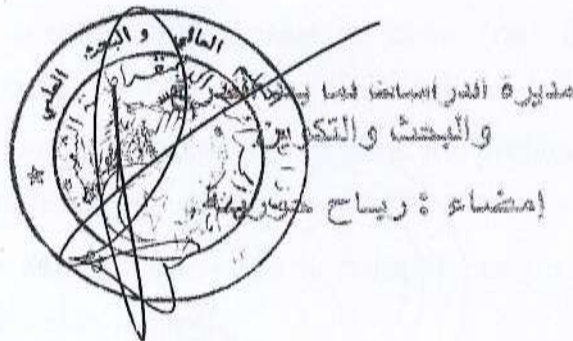 العالي و البحث العلمي
مديرة الدراسات لما بعد التدرج
والبحث والتكوين
إمضاء : رباح حورية